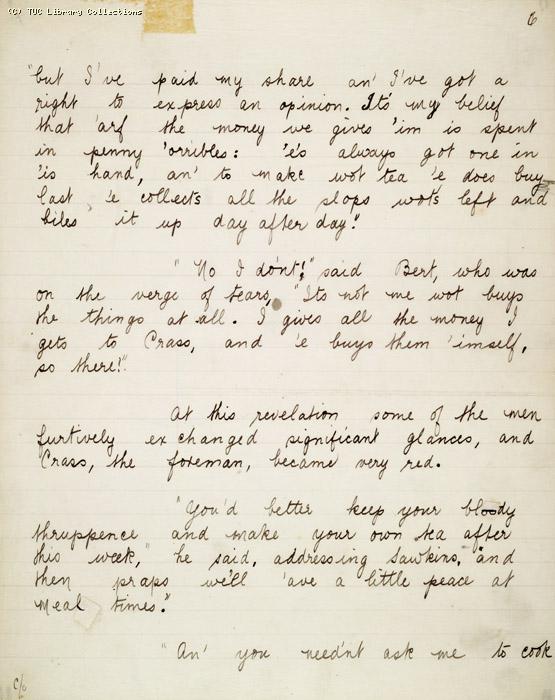 (C) TUC Library Collections
6
"but I've paid my share an' I've got a
right to express an opinion. It's my belief
that 'arf the money we gives 'im is spent
in penny 'orribles: 'e's always got one in
'is hand, an' to make wot tea 'e does buy
last 'e collects all the slops wots left and
biles it up day after day."
"No I do'nt!" said Bert, who was
on the verge of tears, "Its not me wot buys
the things at all. I gives all the money I
gets to Crass, and 'e buys them 'imself,
so there!"
At this revelation some of the men
furtively exchanged significant glances, and
Crass, the foreman, became very red.
"You'd better keep your bloody
thruppence and make your own tea after
this week," he said, addressing Sawkins, "and
then praps we'll 'ave a little peace at
meal times."
"An' you need'nt ask me to cook
c/o